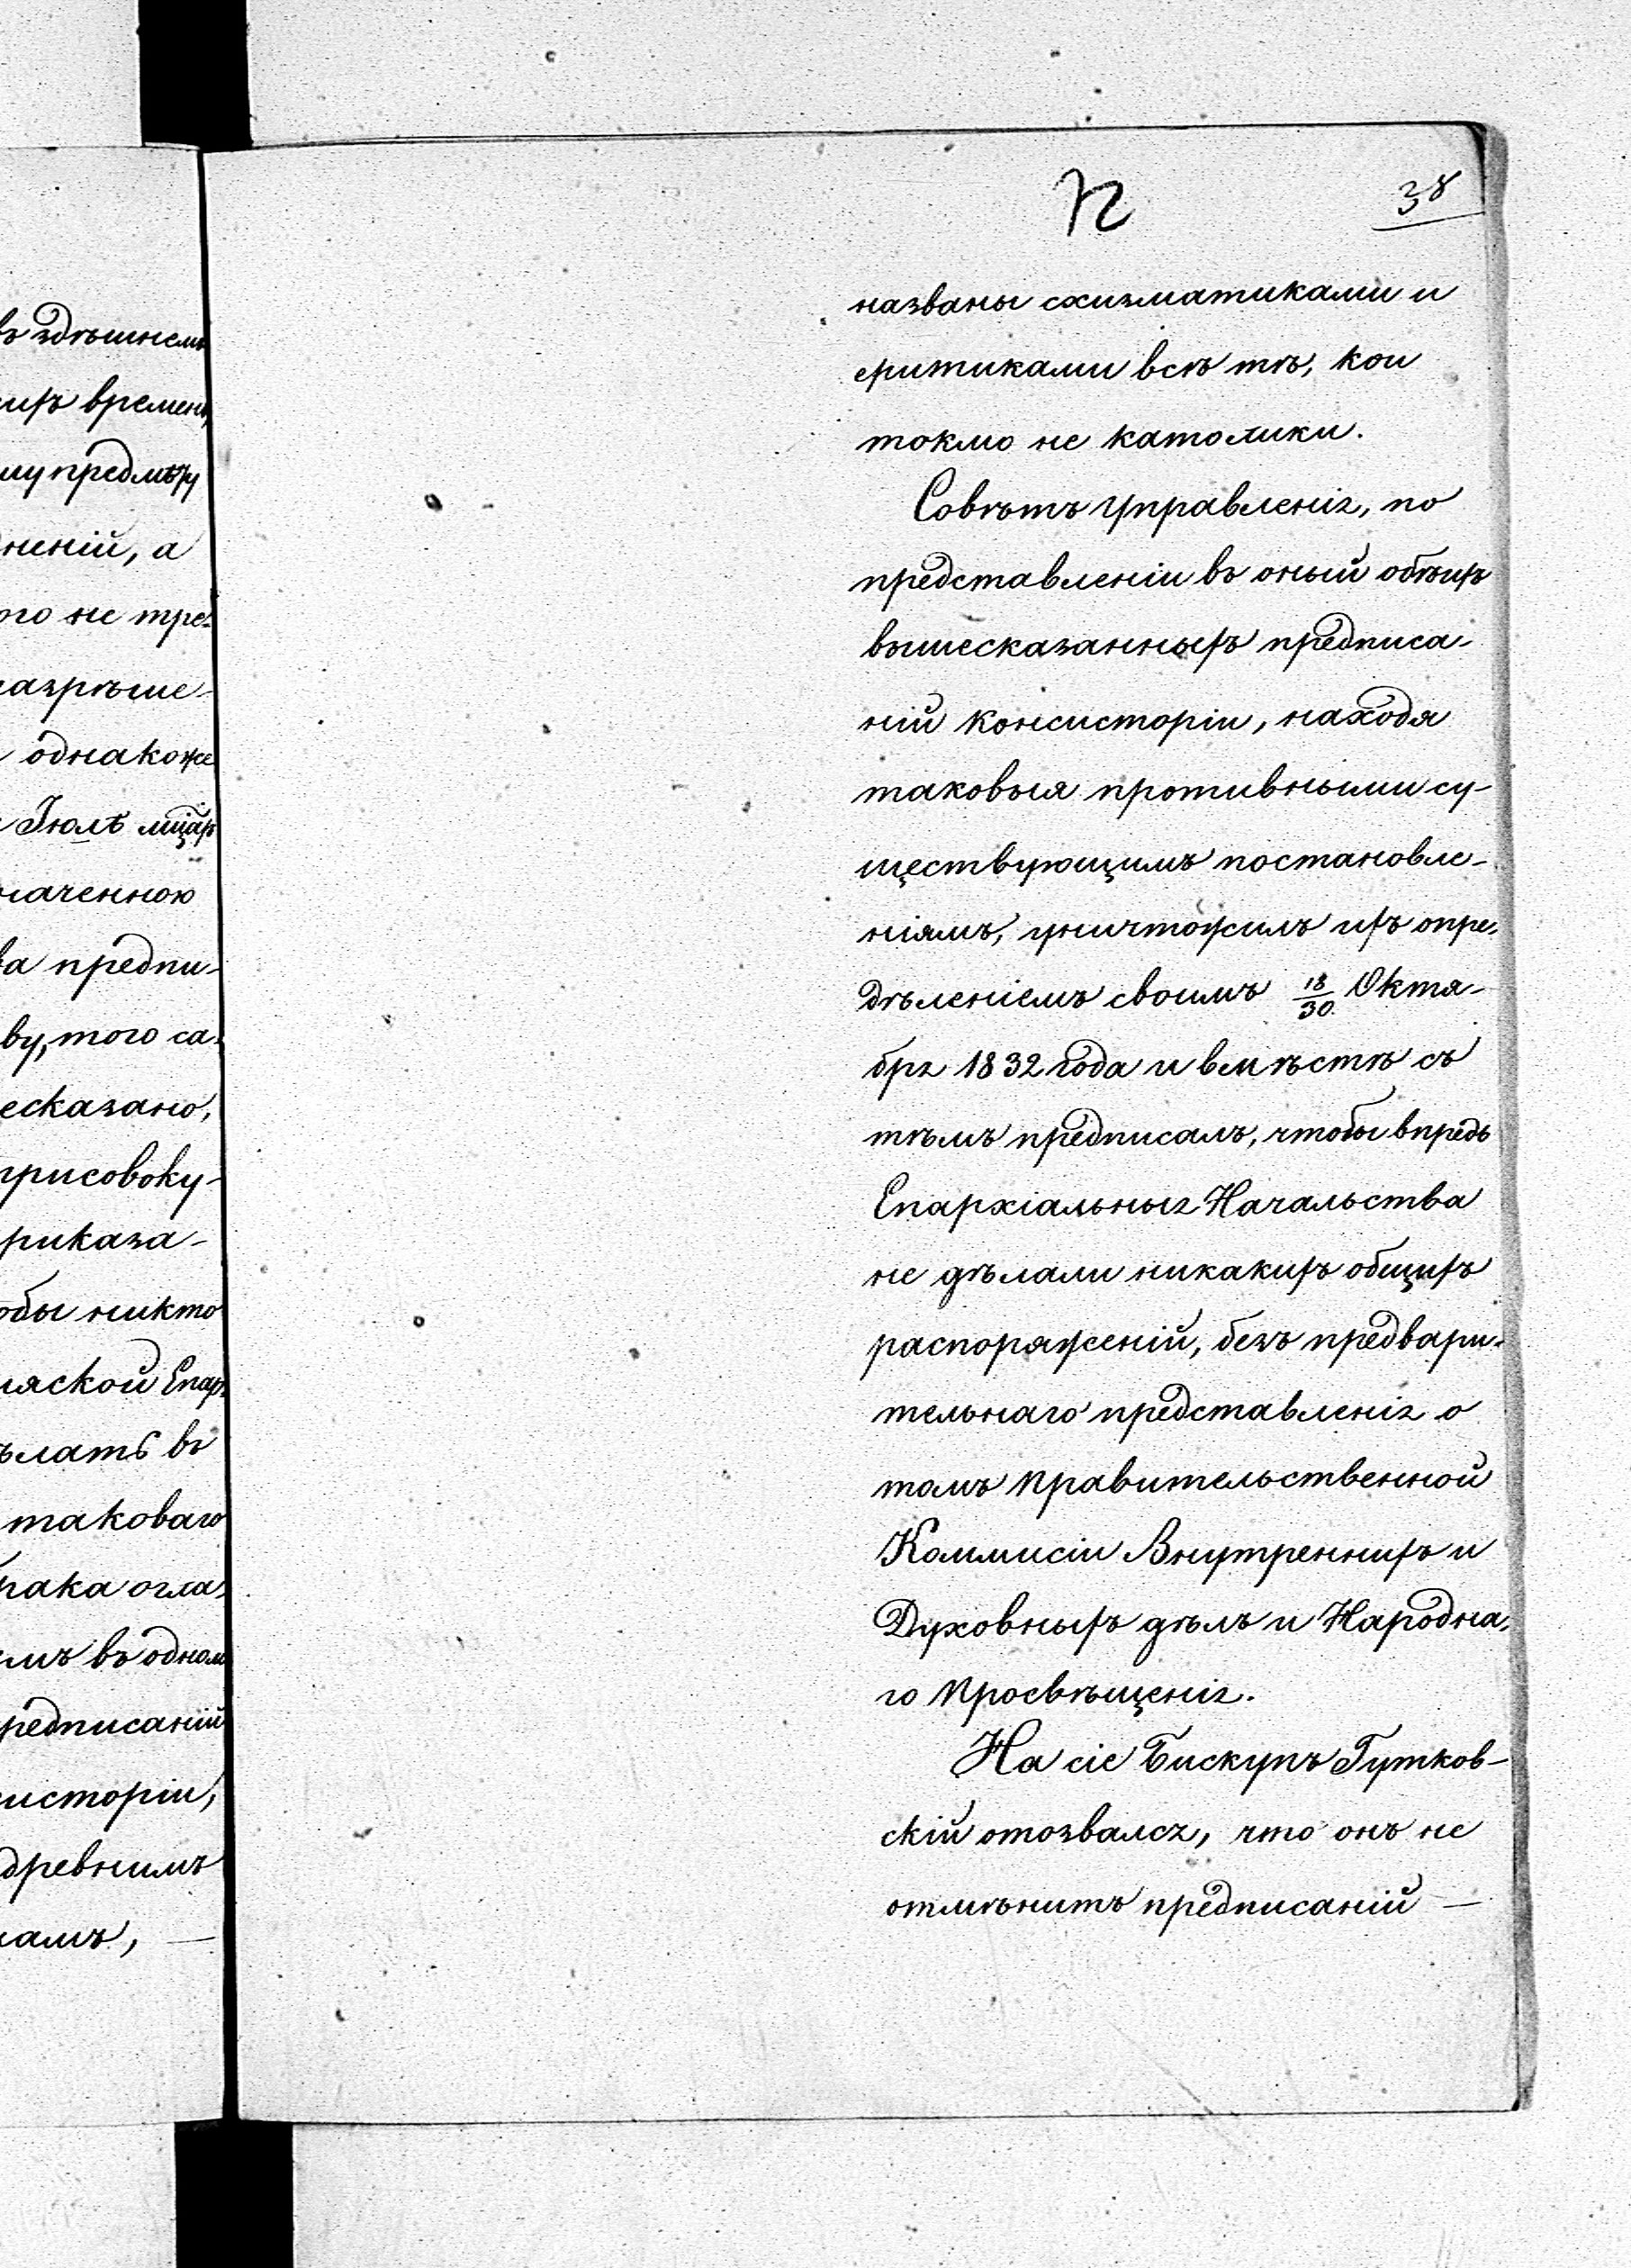 въ здѣшнемъ
времени,
му предмѣту
неній, а
ого не тре-
азрѣше-
однакоже
Іюлѣ мцѣ
наченною
ва предпи-
ву, того са-
есказано,
присовоку-
риказа-
обы никто
ляской Епар-
ѣлать въ
таковаго
рака огла-
мъ въ одном
редписаній
систоріи,
древнимъ
амъ, —
П 38
названы схизматиками и
еритиками всѣ тѣ, кои
токмо не католики.
Совѣтъ Управленія, по
представленіи въ оный обѣихъ
вышесказанныхъ предписа-
ній Консисторіи, находя
таковыя противными су-
ществующимъ постановле-
ніямъ, уничтожилъ ихъ опре-
дѣленіемъ своимъ 18/30 Октя-
бря 1832 года и вмѣстѣ съ
тѣмъ предписалъ, чтобы впредь
Епархіальныя Начальства
не дѣлали никакихъ общихъ
распоряженій, безъ предвари-
тельнаго представленія о
томъ Правительственной
Коммисіи Внутреннихъ и
Духовныхъ дѣлъ и Народна-
го Просвѣщенія.
На сіе Бискупъ Гутков-
скій отозвался, что онъ не
отмѣнитъ предписаній —